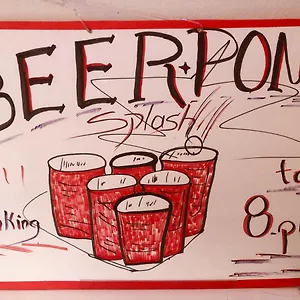 BEER PON
Splash!!!
!! ta
king 8 p